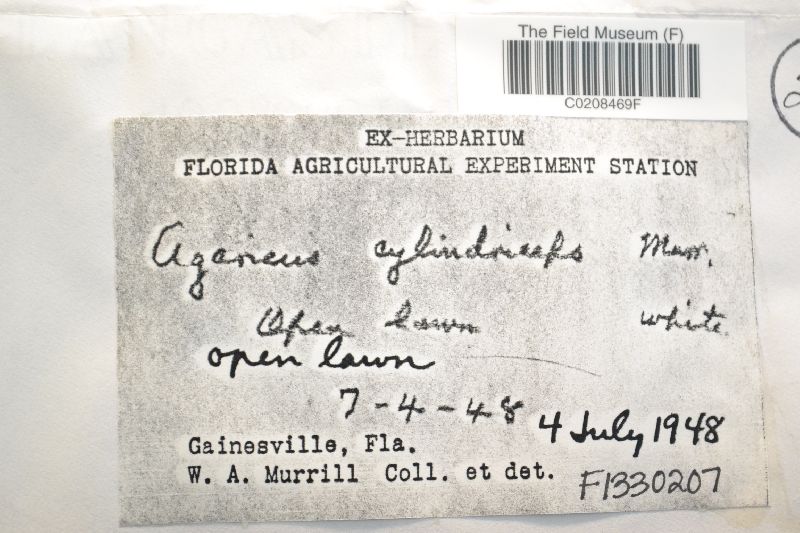 The Field Museum (F)
C0208469F
EX-HERBARIUM
FLORIDA AGRICULTURAL EXPERIMENT STATION
Agaricus cylindriceps Murr.
Open lawn white
open lawn
7-4-48 4 July 1948
Gainesville, Fla.
W. A. Murrill Coll. et det. F1330207